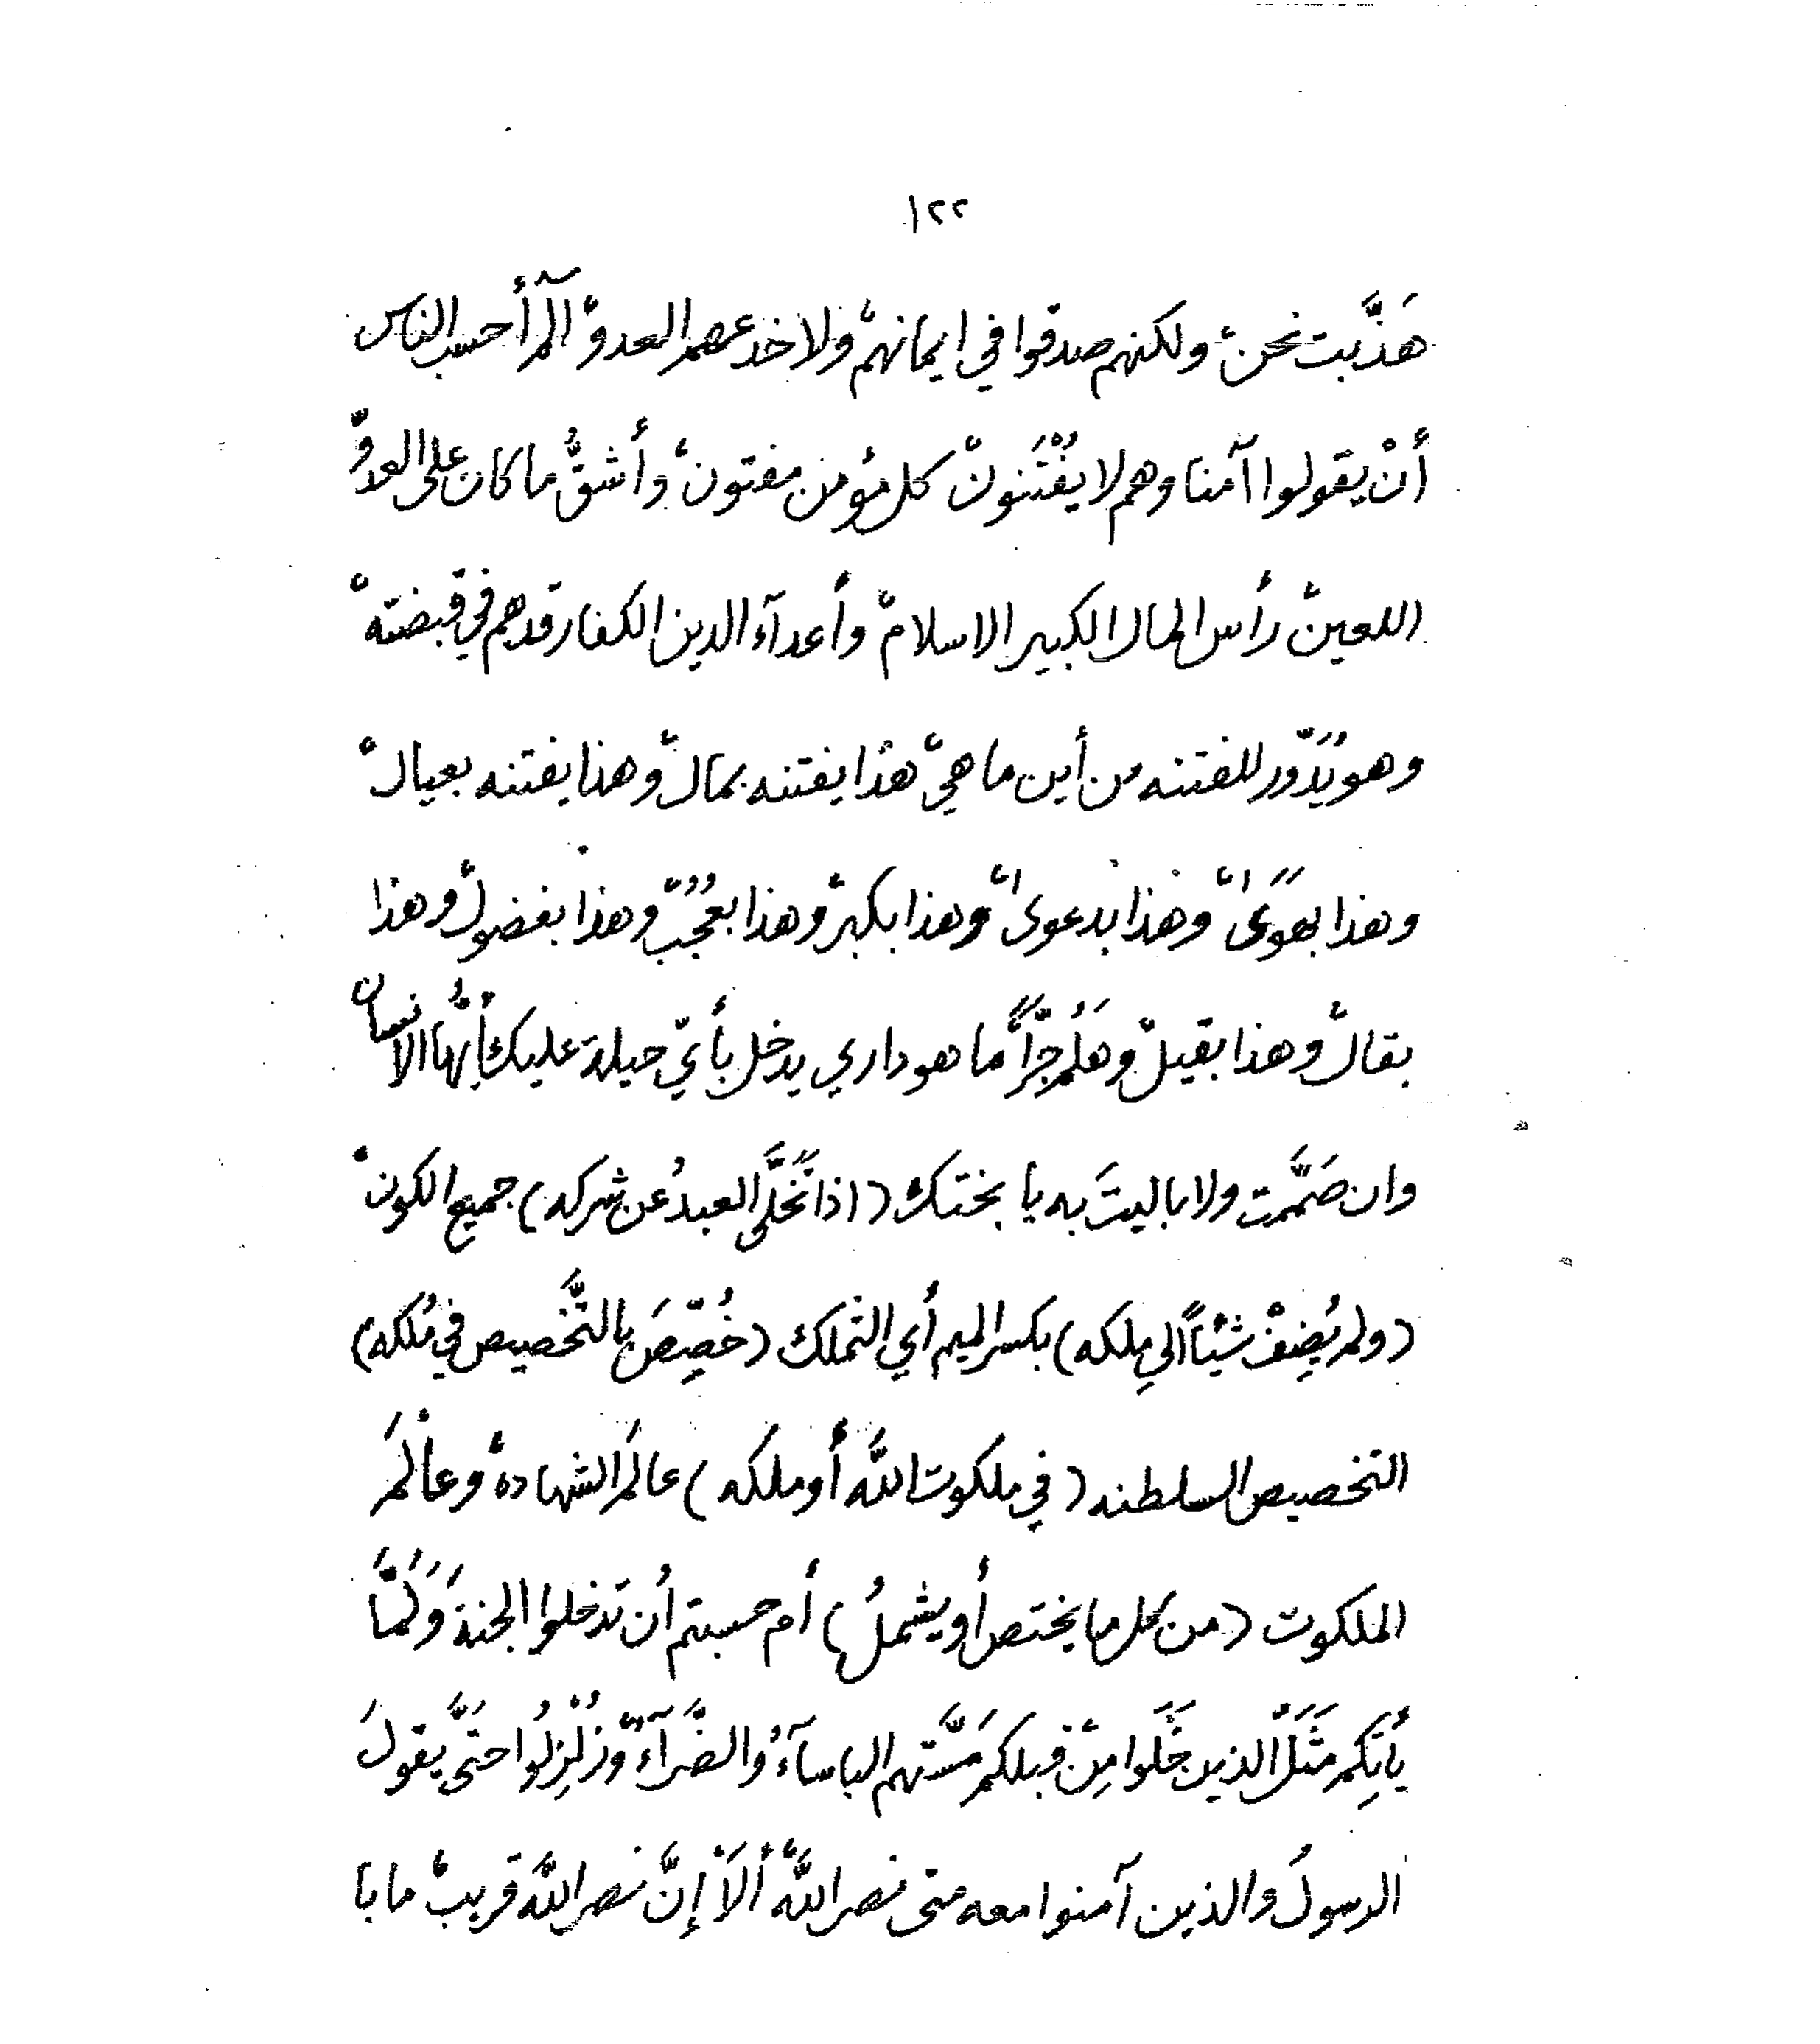 ١٢٢
هَذَّبت نحنْ ولكنهم صدقوا في ايمانهمْ ولا خدعهم العدوّْ آلٓمٓ أحسب الناس
أنْ يقولوا آمنا وهم لا يُفْتَنونْ كل مؤمن مفتونْ وأشقُّ ما كان على العدوّْ
اللعينْ رأس المال الكبير الاسلامْ وأعدآء الدين الكفار قدهم في قبضتهْ
وهو يُدَوّر للفتنه من أين ما هيْ هذا يفتنه بمالْ وهذا يفتنه بعيالْ
وهذا بهوىًٰ وهذا بدعوىٰ وهذا بكبرْ وهذا بعُجُبْ وهذا بفضولْ وهذا
بقالْ وهذا بقيلْ وهَلُم جرّاً ما هو داري يدخل بأيّ حيلة عليك أيُّها الانسان
وان صَمَّمت ولا باليتَ به يا بختكْ (اذا تَخَلَّى العبدُ عن شركه) جميع الكونْ
(ولم يُضِفْ شيْئاً الى مِلكه) بكسر الميم أي التملك (خُصِّصَ بالتَّخصيص في مُلكه)
التخصيص السلطنه (في ملكوت اللَّه أو ملكه) عالَم الشهادهْ وعالَمَ
الملكوت (من كل ما يختص أو يشملُ) أم حسبتم أن تدخلوا الجنةَ وَلَمَّا
يأتِكم مَثَلُ الذين خَلَوا مِنْ قبلكم مَسَّتهم الباسآءُ والضَّرآءُ وَزُلْزِلُوا حتَّى يقولَ
الرسولُ والذين آمنوا معه متى نصر اللَّهْ ألَآ إنَّ نصر اللَّه قريبْ ما با